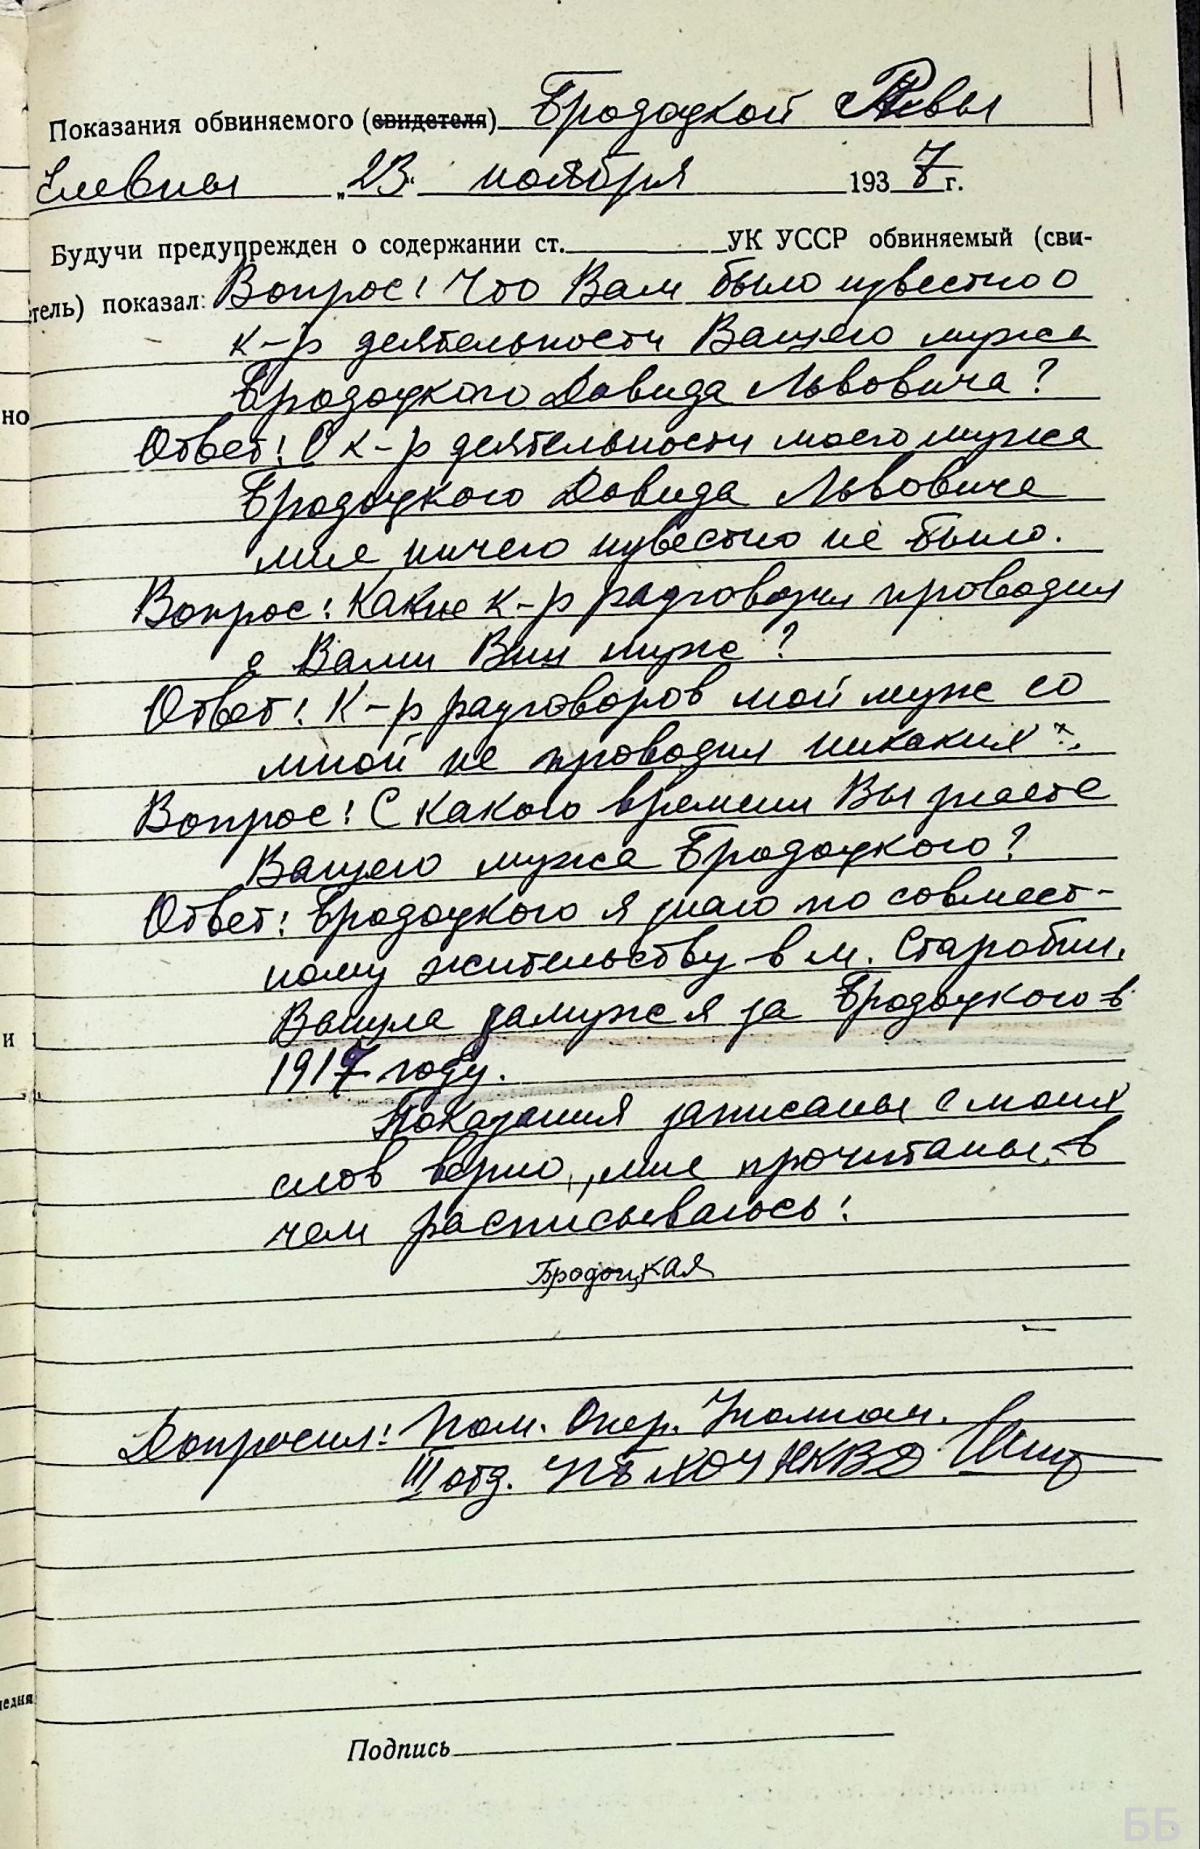 Показания обвиняемого (свидетеля) Бродоцкой Ривы
Елевны „23“ ноября 1937 г.
Будучи предупрежден о содержании ст. УК УССР обвиняемый (сви-
тель) показал: Вопрос: Что Вам было известно о
к-р деятельности Вашего мужа
Бродоцкого Давида Львовича?
Ответ: О к-р деятельности моего мужа
Бродоцкого Давида Львовича
мне ничего известно не было.
Вопрос: Какие к-р разговоры проводил
с Вами Ваш муж?
Ответ: К-р разговоров мой муж со
мной не проводил никаких.
Вопрос: С какого времени Вы знаете
Вашего мужа Бродоцкого?
Ответ: Бродоцкого я знаю по совмест-
ному жительству в м. Старобин.
Вышла замуж я за Бродоцкого в
1917 году.
Показания записаны с моих
слов верно, мне прочитаны, в
чем расписываюсь:
Бродоцкая
Допросил: Пом. Опер. Уполном.
III отд. УГБ ХОУ НКВД
Подпись
но
и
ББ